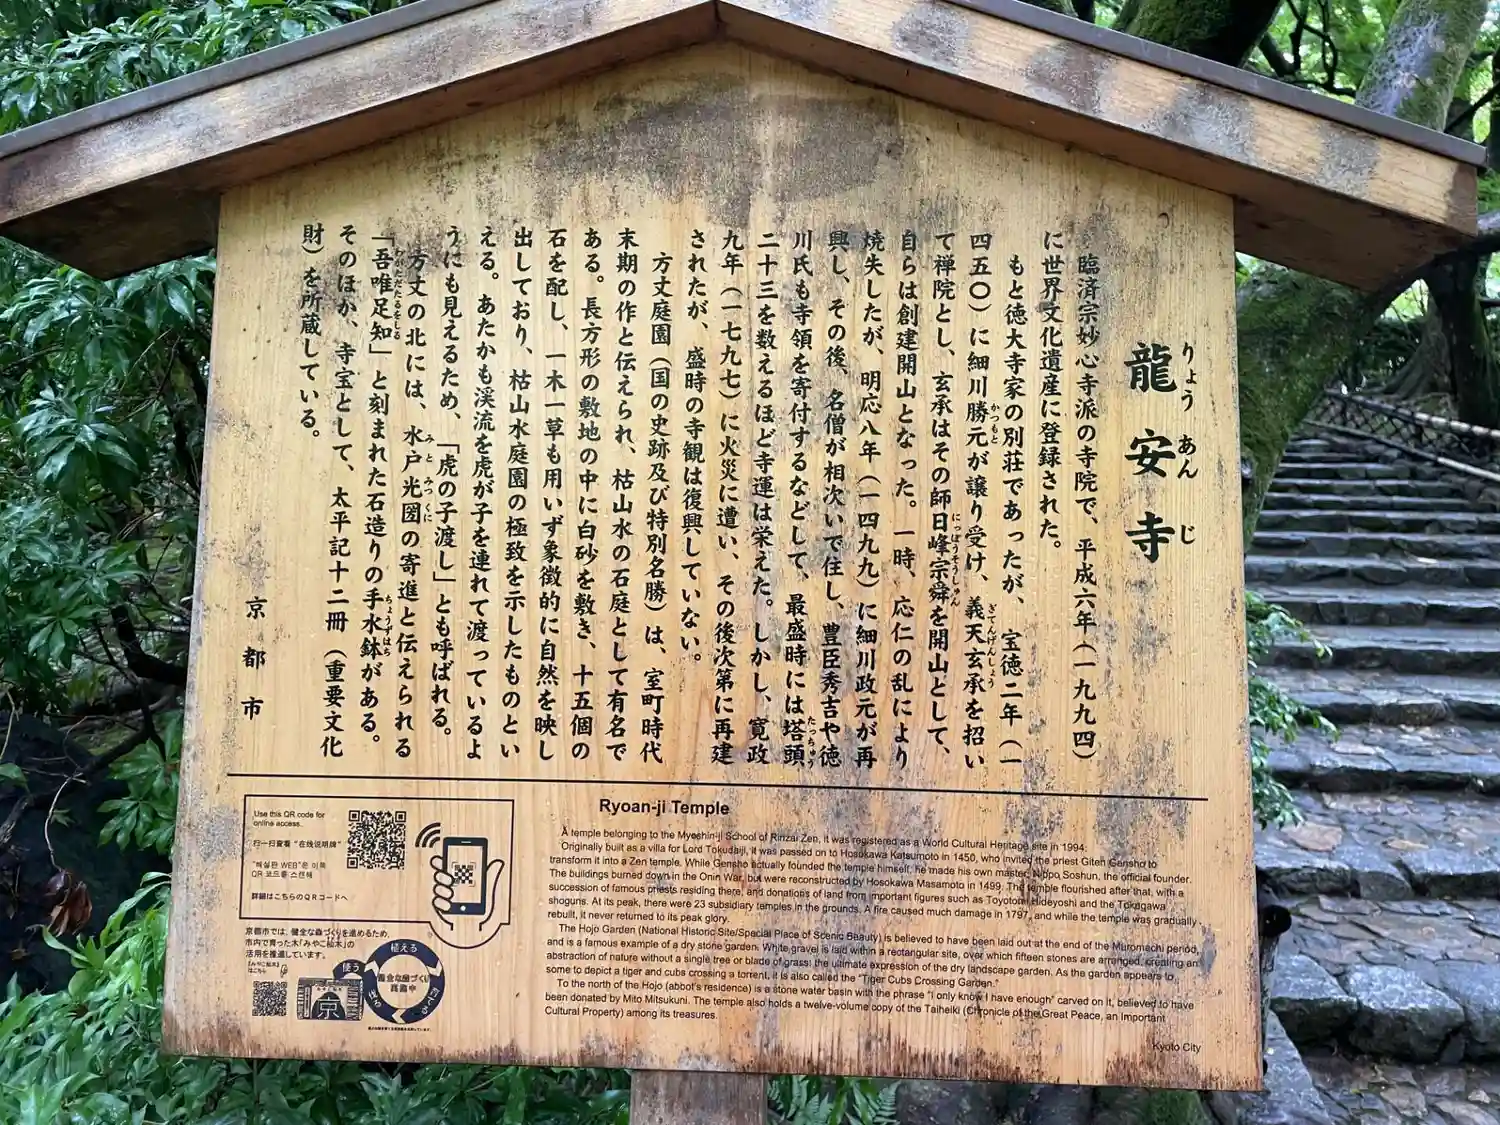 龍安寺
りょうあんじ
臨済宗妙心寺派の寺院で、平成六年(一九九四)
に世界文化遺産に登録された。
もと徳大寺家の別荘であったが、宝徳二年(一
四五〇)に細川勝元が譲り受け、義天玄承を招い
かつもと
ぎてんげんしょう
て禅院とし、玄承はその師日峰宗舜を開山として、
にっぽうそうしゅん
自らは創建開山となった。一時、応仁の乱により
焼失したが、明応八年(一四九九)に細川政元が再
興し、その後、名僧が相次いで住し、豊臣秀吉や徳
川氏も寺領を寄付するなどして、最盛時には塔頭
たっちゅう
二十三を数えるほど寺運は栄えた。しかし、寛政
九年(一七九七)に火災に遭い、その後次第に再建
されたが、盛時の寺観は復興していない。
方丈庭園(国の史跡及び特別名勝)は、室町時代
末期の作と伝えられ、枯山水の石庭として有名で
ある。長方形の敷地の中に白砂を敷き、十五個の
石を配し、一木一草も用いず象徴的に自然を映し
出しており、枯山水庭園の極致を示したものとい
える。あたかも渓流を虎が子を連れて渡っているよ
うにも見えるため、「虎の子渡し」とも呼ばれる。
方丈の北には、水戸光圀の寄進と伝えられる
みと みつくに
「吾唯足知」と刻まれた石造りの手水鉢がある。
われただたるをしる
ちょうずばち
そのほか、寺宝として、太平記十二冊(重要文化
財)を所蔵している。
京都市
Use this QR code for
online access.
扫一扫查看“在线说明牌”
"해설판 WEB"은 이쪽
QR 코드를 스캔해
詳細はこちらのQRコードへ
京都市では、健全な森づくりを進めるため、
市内で育った木「みやこ杣木」の
活用を推進しています。
「みやこ杣木」
はこちら
植える
育てる
伐る
使う
健全な森づくり
京
Ryoan-ji Temple
A temple belonging to the Myoshin-ji School of Rinzai Zen, it was registered as a World Cultural Heritage site in 1994.
Originally built as a villa for Lord Tokudaiji, it was passed on to Hosokawa Katsumoto in 1450, who invited the priest Giten Gensho to
transform it into a Zen temple. While Gensho actually founded the temple himself, he made his own master, Nippo Soshun, the official founder.
The buildings burned down in the Onin War, but were reconstructed by Hosokawa Masamoto in 1499. The temple flourished after that, with a
succession of famous priests residing there, and donations of land from important figures such as Toyotomi Hideyoshi and the Tokugawa
shoguns. At its peak, there were 23 subsidiary temples in the grounds. A fire caused much damage in 1797, and while the temple was gradually
rebuilt, it never returned to its peak glory.
The Hojo Garden (National Historic Site/Special Place of Scenic Beauty) is believed to have been laid out at the end of the Muromachi period,
and is a famous example of a dry stone garden. White gravel is laid within a rectangular site, over which fifteen stones are arranged, creating an
abstraction of nature without a single tree or blade of grass: the ultimate expression of the dry landscape garden. As the garden appears to
some to depict a tiger and cubs crossing a torrent, it is also called the "Tiger Cubs Crossing Garden."
To the north of the Hojo (abbot's residence) is a stone water basin with the phrase "I only know I have enough" carved on it, believed to have
been donated by Mito Mitsukuni. The temple also holds a twelve-volume copy of the Taiheiki (Chronicle of the Great Peace, an Important
Cultural Property) among its treasures.
Kyoto City